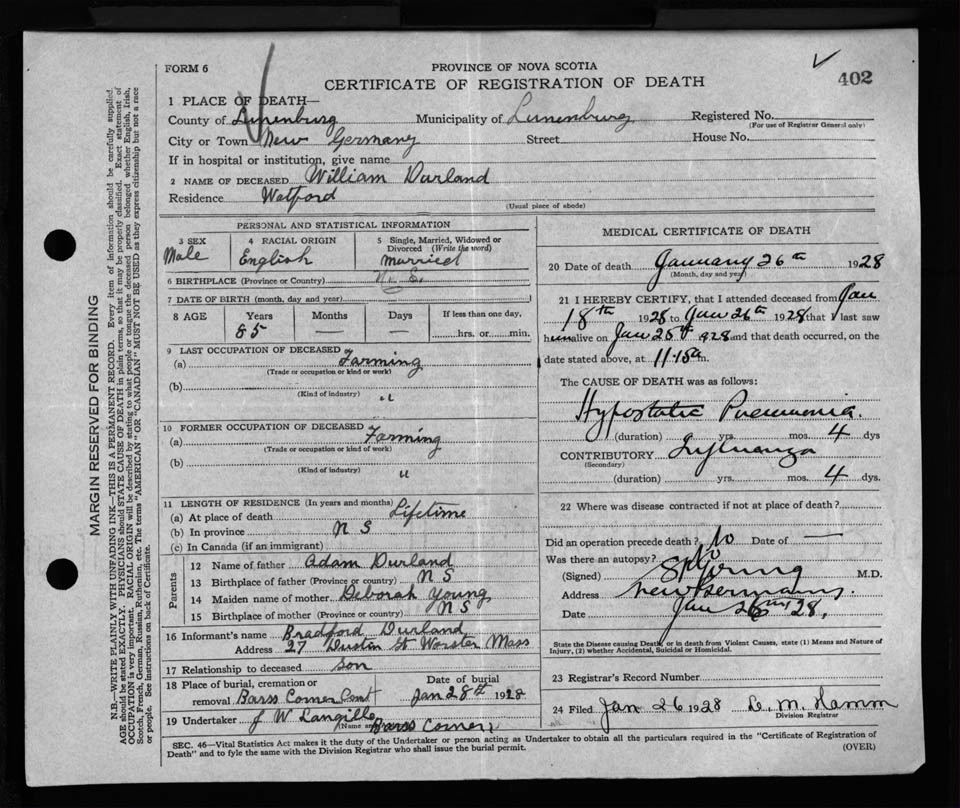 FORM 6
PROVINCE OF NOVA SCOTIA
402
CERTIFICATE OF REGISTRATION OF DEATH
1 PLACE OF DEATH—
County of Lunenburg Municipality of Lunenburg Registered No.
(For use of Registrar General only)
City or Town New Germany Street House No.
If in hospital or institution, give name
2 NAME OF DECEASED William Durland
Residence Watford
(Usual place of abode)
PERSONAL AND STATISTICAL INFORMATION
3 SEX Male
4 RACIAL ORIGIN English
5 Single, Married, Widowed or Divorced (Write the word) married
6 BIRTHPLACE (Province or Country) N. S.
7 DATE OF BIRTH (month, day and year)
8 AGE Years Months Days If less than one day,
85 — — hrs. or min.
9 LAST OCCUPATION OF DECEASED
(a) Farming
(Trade or occupation or kind or work)
(b) "
(Kind of industry)
10 FORMER OCCUPATION OF DECEASED
(a) Farming
(Trade or occupation or kind or work)
(b) "
(Kind of industry)
11 LENGTH OF RESIDENCE (In years and months)
(a) At place of death Lifetime
(b) In province N S
(c) In Canada (if an immigrant)
Parents
12 Name of father Adam Durland
13 Birthplace of father (Province or country) N S
14 Maiden name of mother Deborah Young
15 Birthplace of mother (Province or country) N S
16 Informant's name Bradford Durland
Address 27 Dustin St Worster Mass
17 Relationship to deceased Son
18 Place of burial, cremation or removal Barss Corner Cemt
Date of burial Jan 28th 1928
19 Undertaker J W Langille Barss Corner
(Name and
MEDICAL CERTIFICATE OF DEATH
20 Date of death January 26th 1928
(Month, day and year)
21 I HEREBY CERTIFY, that I attended deceased from Jan
18th 1928 to Jan 26th 1928 that I last saw
him alive on Jan 25th 1928 and that death occurred, on the
date stated above, at 11.15 a m.
The CAUSE OF DEATH was as follows:
Hypostatic Pneumonia
(duration) yrs. mos. 4 dys
CONTRIBUTORY Influenza
(Secondary)
(duration) yrs. mos. 4 dys.
22 Where was disease contracted if not at place of death?
Did an operation precede death? No Date of —
Was there an autopsy? No
(Signed) Young M.D.
Address New Germany
Date Jan 26th 28.
State the Disease causing Death, or in death from Violent Causes, state (1) Means and Nature of
Injury, (2) whether Accidental, Suicidal or Homicidal.
23 Registrar's Record Number
24 Filed Jan 26 1928 M. Hamm
Division Registrar
SEC. 46—Vital Statistics Act makes it the duty of the Undertaker or person acting as Undertaker to obtain all the particulars required in the "Certificate of Registration of
Death" and to fyle the same with the Division Registrar who shall issue the burial permit.
(OVER)
MARGIN RESERVED FOR BINDING
N.B.—WRITE PLAINLY WITH UNFADING INK—THIS IS A PERMANENT RECORD. Every item of information should be carefully supplied.
AGE should be stated EXACTLY. PHYSICIANS should STATE CAUSE OF DEATH in plain terms, so that it may be properly classified. Exact statement of
OCCUPATION is very important. RACIAL ORIGIN will be described by stating to what people or tongue the deceased person belonged whether English, Irish,
Scotch, French, German, Russian, Ruthenian, etc. The terms "AMERICAN" OR "CANADIAN" MUST NOT BE USED as they express citizenship but not a race
or people. See instructions on back of Certificate.